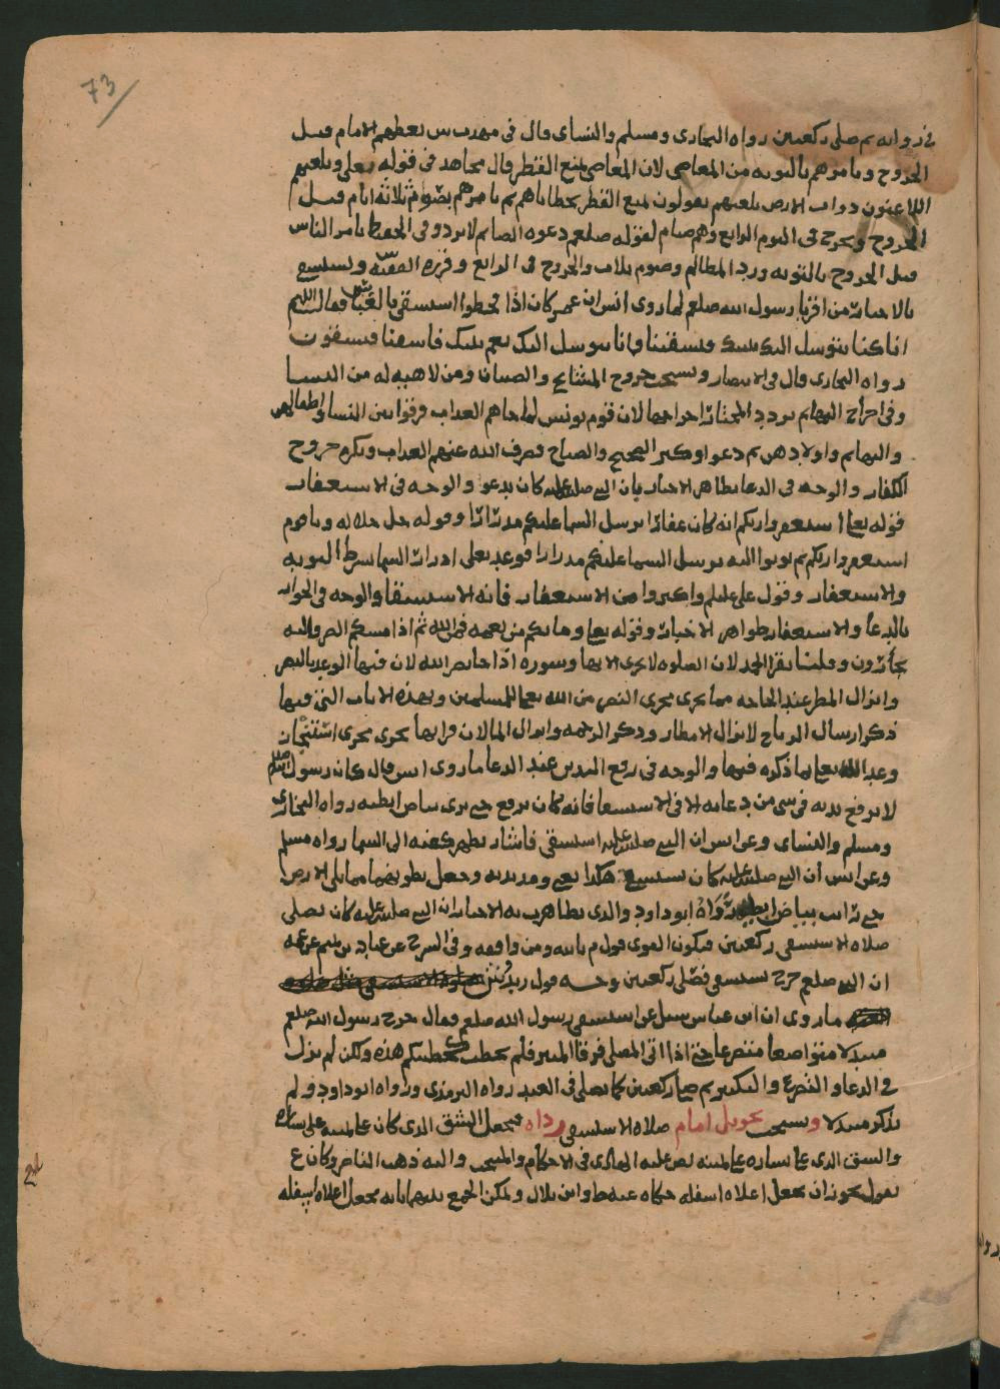 73
في رواية ثم صلى ركعتين رواه البخاري ومسلم والنسائي وقال في يعظهم الامام قبل
الخروج ويامرهم بالتوبة من المعاصي لان المعاصي تمنع القطر وقال مجاهد في قوله تعلى ويلعنهم
اللاعنون دواب الارض تلعنهم يقولون تمنع القطر بخطاياهم ثم يامرهم بصوم ثلاثة ايام قبل
الخروج ويخرج في اليوم الرابع وهم صيام لقوله صلعم دعوة الصائم لا ترد وفي يامر الناس
قبل الخروج بالتوبة ورد المظالم وصوم ثلاث والخروج في الرابع ويستسقي
من اقربا رسول الله صلعم لما روى انس ان عمر كان اذا قحطوا استسقى بالعباس فقال اللهم
انا كنا نتوسل اليك بنبيك فتسقينا وانا نتوسل اليك بعم نبيك فاسقنا فيسقون
رواه البخاري وقال في الانتصار ويستحب خروج المشايخ والصبيان ومن لا هيبة له من النسا
وفي اخراج البهايم تردد اخراجها لان قوم يونس لما جاهم العذاب فرقوا بين النسا واطفالهن
والبهايم واولادهن ثم دعوا وكثر الضجيج والصياح فصرف الله عنهم العذاب ويكره خروج
الكفار والوجه في الدعا تظاهر الاخبار بان النبي صلى الله عليه كان يدعو والوجه في الاستغفار
قوله تعا استغفروا ربكم انه كان غفارا يرسل السما عليكم مدرارا وقوله جل جلاله ويا قوم
استغفروا ربكم ثم توبوا اليه يرسل السما عليكم مدرارا فوعد تعلى ادرار السما بشرط التوبة
والاستغفار وقول علي عليلم واكثروا من الاستغفار فانه الاستسقا والوجه في الجوار
بالدعا والاستغفار ظواهر الاخبار وقوله تعا وما بكم من نعمة فمن الله ثم اذا مسكم الضر فاليه
تجأرون وقلنا يقرا الحمد لان الصلوة لا تجزي الا بها وسورة اذا جا نصر الله لان فيها الوعد بالنصر
وانزال المطر عند الحاجة مما يجري مجرى النصر من الله تعا للمسلمين وبهذه الايات التي فيها
ذكر ارسال الرياح لانزال الامطار وذكر الرحمة يجري مجرى
وعد الله تعا بما ذكره فيها والوجه في رفع اليدين عند الدعا ما روى انس قال كان رسول الله صلعم
لا يرفع يديه في شي من دعائه الا في الاستسقا فانه كان يرفع حتى يرى بياض ابطيه رواه البخاري
ومسلم والنسائي وعن انس ان النبي صلى الله عليه استسقى فاشار بظهر كفيه الى السما رواه مسلم
وعن انس ان النبي صلى الله عليه كان يستسقي هكذا يعني ومد يديه وجعل بطونهما مما يلي الارض
حتى رايت بياض ابطيه رواه ابو داود والذي تظاهرت به الاخبار ان النبي صلى الله عليه كان يصلي
صلاة الاستسقى ركعتين فيكون القوي قول م بالله ومن وافقه وفي الشرح عن عباد بن تميم عن عمه
ان النبي صلعم خرج يستسقي فصلى ركعتين وجه قول
ما روى ان ابن عباس سئل عن استسقى رسول الله صلعم فقال خرج رسول الله صلعم
متبذلا متواضعا متضرعا حتى اذا اتى المصلى فرقا المنبر فلم يخطب كخطبتكم هذه ولكن لم يزل
في الدعا والتضرع والتكبير ثم صلى ركعتين كما يصلى في العيد رواه الترمذي ورواه ابو داود ولم
يذكر متبذلا ويستحب تحويل امام صلاة الاستسقى رداه فيجعل الشق الذي كان على يمينه على يساره
والشق الذي على يساره على يمينه نص عليه الهادي في الاحكام والمنتخب واليه ذهب الناصر وكان ع
يقول يجوز ان يجعل اعلاه اسفله حكاه عنه ط وابن بلال ويمكن الجمع بينهما بانه يجعل اعلاه اسفله